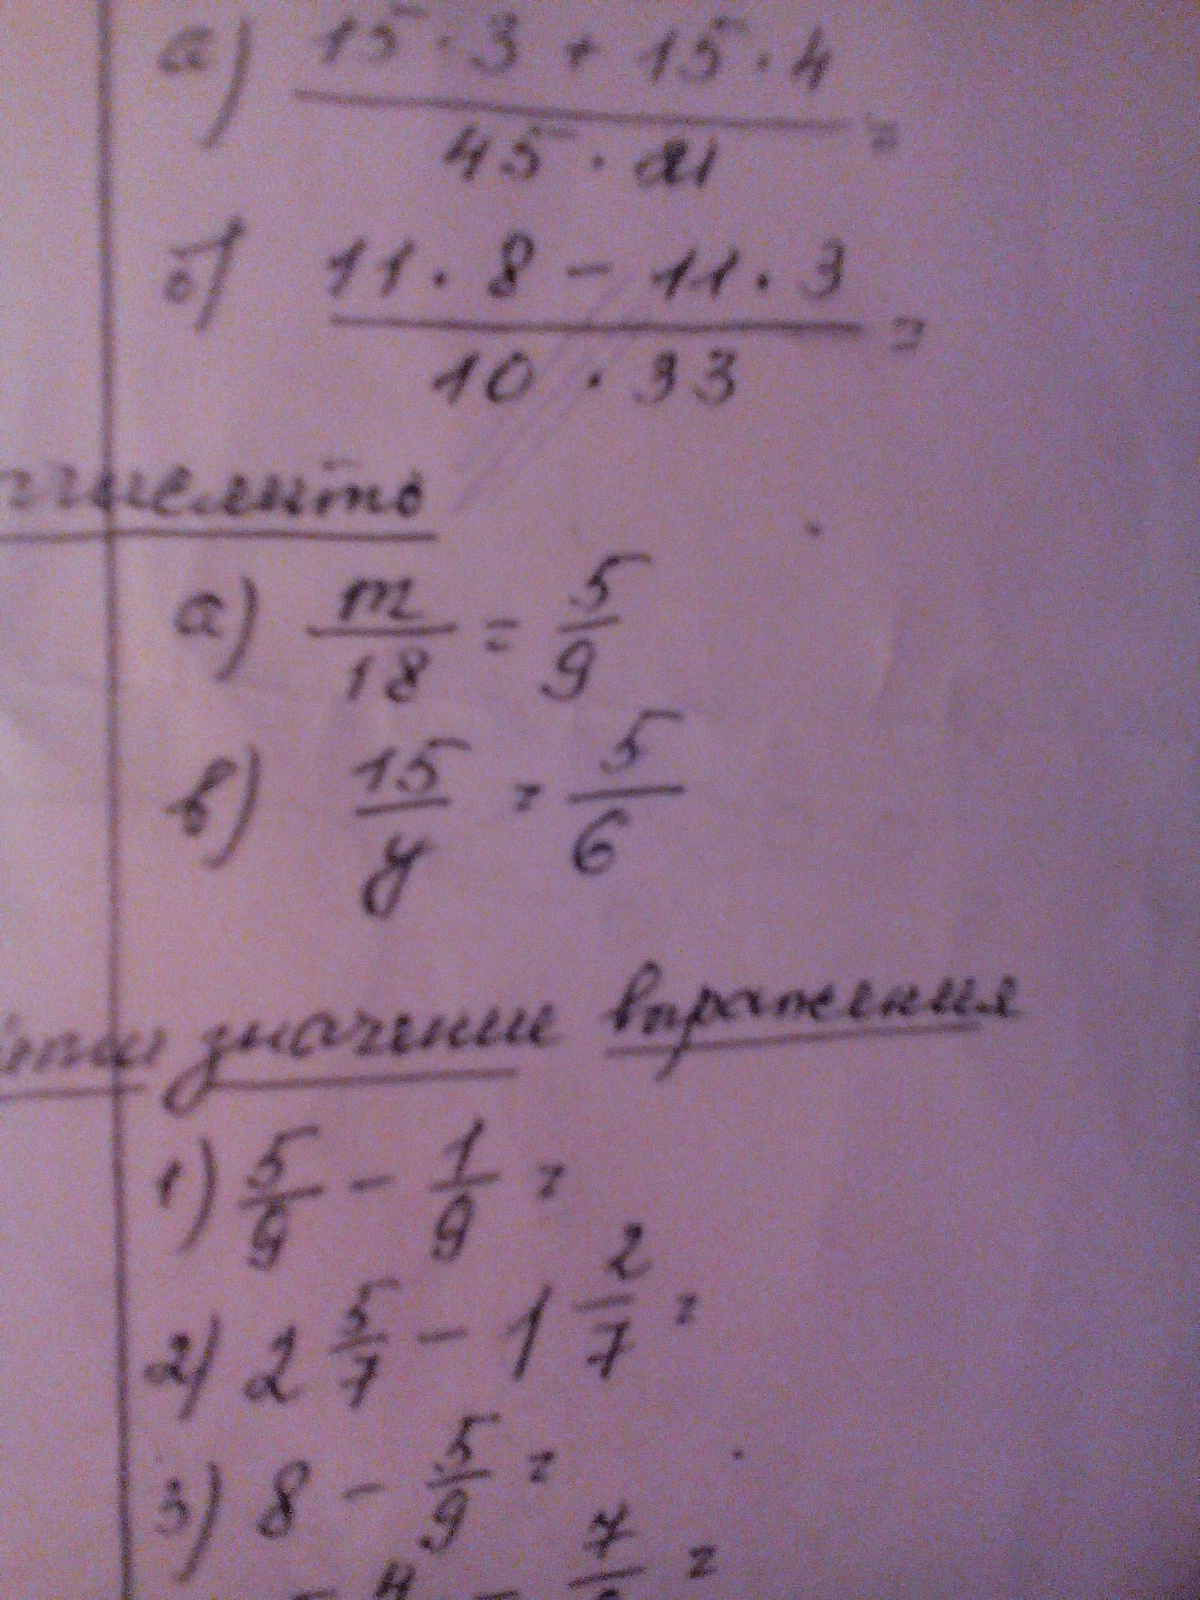 а) (15 · 3 + 15 · 4) / (45 · 21) =
б) (11 · 8 - 11 · 3) / (10 · 33) =
а) m/18 = 5/9
в) 15/y = 5/6
значение выражения
1) 5/9 - 1/9 =
2) 2 5/7 - 1 2/7 =
3) 8 - 5/9 =